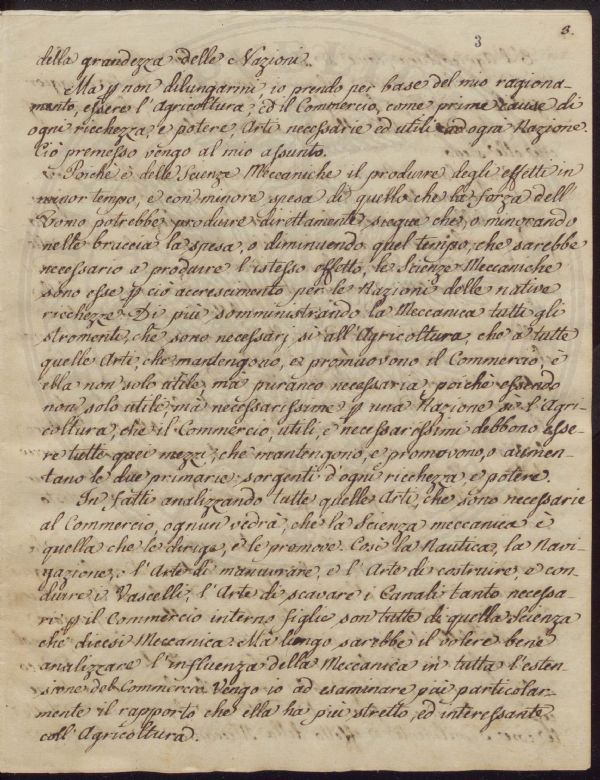 3
3.
della grandezza delle Nazioni.
Ma p non dilungarmi, io prendo per base del mio raziona-
mento, essere l'Agricoltura, ed il Commercio, come prime cause di
ogni ricchezza, e potere, Arti necessarie ed utili ad ogni Nazione.
Ciò premesso vengo al mio assunto.
Poichè è delle Scienze Meccaniche il produrre degli effetti in
minor tempo, e con minore spesa di quello che la forza dell'
Uomo potrebbe produrre direttamente, siegue che, o minorando
nelle braccia la spesa, o diminuendo quel tempo, che sarebbe
necessario a produrre l'istesso effetto, le Scienze Meccaniche
sono esse p ciò accrescimento per le Nazioni delle native
ricchezze. Di più, somministrando la Meccanica tutti gli
stromenti, che sono necessarj sì all'Agricoltura, che a tutte
quelle Arti, che mantengono, e promuovono il Commercio, è
ella non solo utile, mà puranco necessaria; poichè essendo
non solo utili, mà necessarissime p una Nazione sì l'Agri-
coltura, che il Commercio, utili, e necessarissimi debbono esse-
re tutti quei mezzi, che mantengono, e promovono, o aumen-
tano le due primarie sorgenti d'ogni ricchezza, e potere.
In fatti analizzando tutte quelle Arti, che sono necessarie
al Commercio, ognun vedrà, che la Scienza meccanica è
quella che le dirige, e le promove. Così la Nautica, la Navi-
gazione, l'Arte di manuvrare, e l'Arte di costruire, e con-
durre i Vascelli, l'Arte di scavare i Canali tanto necessa-
rj p il Commercio interno figlie son tutte di quella Scienza
che dicesi Meccanica. Mà lungo sarebbe il volere bene
analizzare l'influenza della Meccanica in tutta l'esten-
sione del Commercio. Vengo io ad esaminare più particolar-
mente il rapporto che ella ha più stretto, ed interessante
coll'Agricoltura.